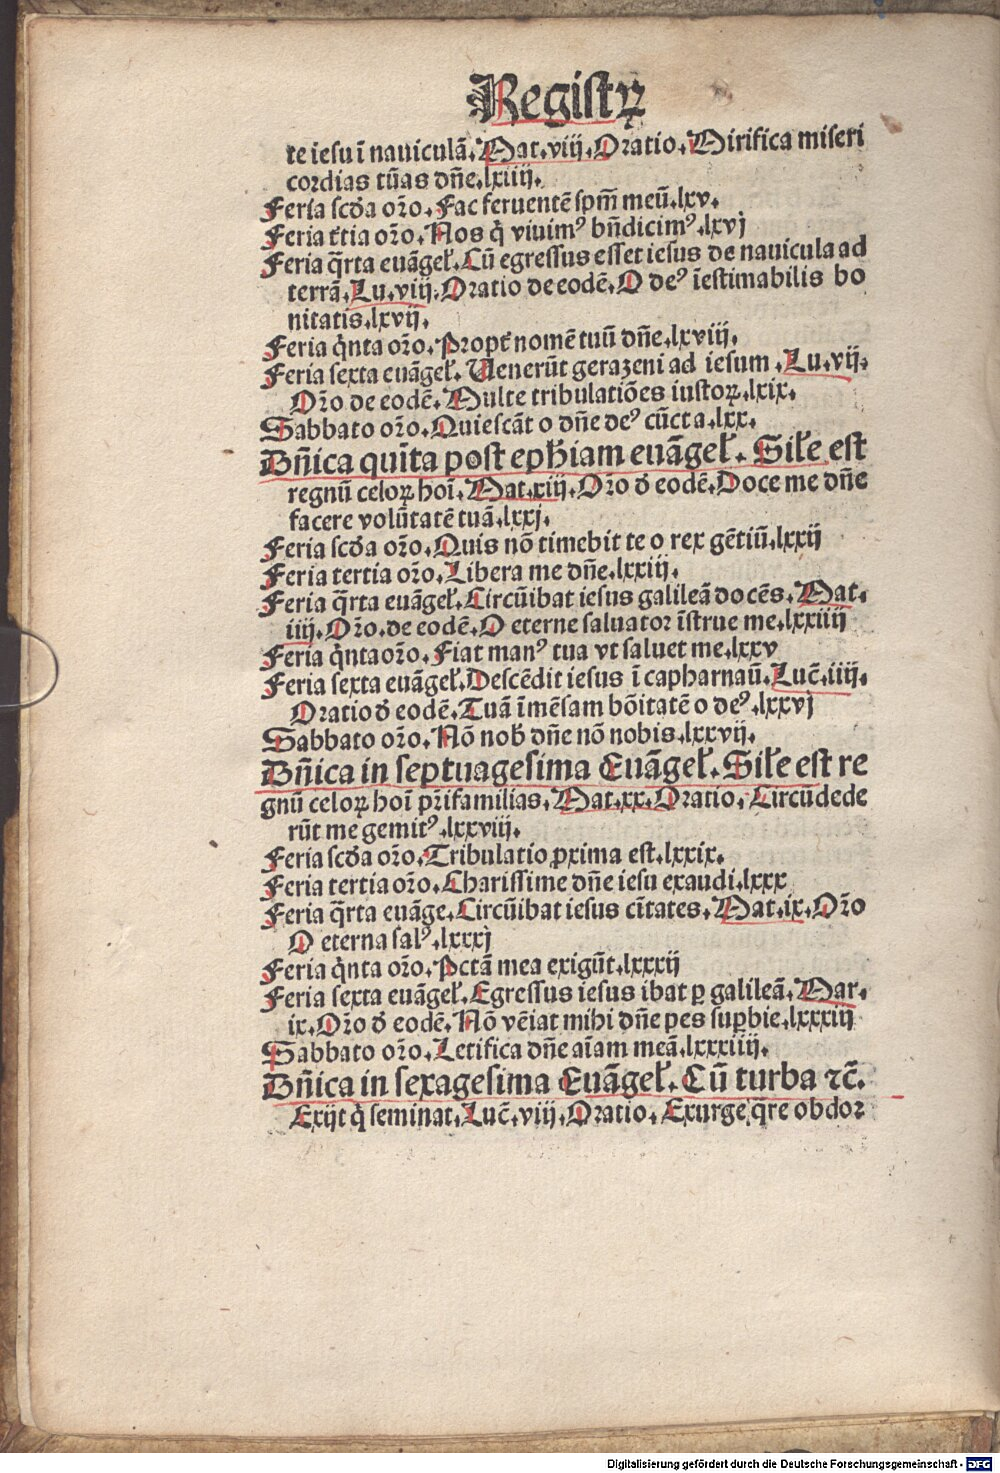 Registꝝ
te iesu ī nauiculā. Mat. viij. Oratio. Mirifica miseri
cordias tūas dn̄e. lxiiij.
Feria scd̄a or̄o. Fac feruentē sp̄m̄ meū. lxv.
Feria t̄tia or̄o. Nos q̇ viuimꝰ bn̄dicimꝰ. lxvj
Feria q̄rta euāgel̄. Cū egressus esset iesus de nauicula ad
terrā. Lu. viij. Oratio de eodē. O deꝰ īestimabilis bo
nitatis. lxvij.
Feria q̇nta or̄o. Propt̄ nomē tuū dn̄e. lxviij.
Feria sexta euāgel̄. Uenerūt gerazeni ad iesum. Lu. vij.
Or̄o de eodē. Multe tribulatiōes iustoꝝ. lxix.
Sabbato or̄o. Quiescāt o dn̄e deꝰ cūcta. lxx.
Dn̄ica qui̅ta post eph̄iam euāgel̄. Sil̄e est
regnū celoꝝ hoī. Mat. xiij. Or̄o d̄ eodē. Doce me dn̄e
facere volūtatē tuā. lxxj.
Feria scd̄a or̄o. Quis nō timebit te o rex gētiū. lxxij
Feria tertia or̄o. Libera me dn̄e. lxxiij.
Feria q̄rta euāgel̄. Circūibat iesus galileā docēs. Mat.
iiij. Or̄o. de eodē. O eterne saluator īstrue me. lxxiiij
Feria q̇nta or̄o. Fiat manꝰ tua vt saluet me. lxxv
Feria sexta euāgel̄. Descēdit iesus ī capharnaū. Luc̄. iiij.
Oratio d̄ eodē. Tuā īmēsam bōitatē o deꝰ. lxxvj
Sabbato or̄o. Nō nob̄ dn̄e nō nobis. lxxvij.
Dn̄ica in septuagesima Euāgel̄. Sil̄e est re
gnū celoꝝ hoī pr̄ifamilias. Mat. xx. Oratio. Circūdede
rūt me gemitꝰ. lxxviij.
Feria scd̄a or̄o. Tribulatio ꝓxima est. lxxix.
Feria tertia or̄o. Charissime dn̄e iesu exaudi. lxxx
Feria q̄rta euāge. Circūibat iesus ci̅tates. Mat. ix. Or̄o
O eterna salꝰ. lxxxj
Feria q̇nta or̄o. Pctā mea exigūt. lxxxij
Feria sexta euāgel̄. Egressus iesus ibat ꝑ galileā. Mar.
ix. Or̄o d̄ eodē. Nō vēiat mihi dn̄e pes suꝑbie. lxxxiij
Sabbato or̄o. Letifica dn̄e aīam meā. lxxxiiij.
Dn̄ica in sexagesima Euāgel̄. Cū turba ⁊c̄.
Exijt q̇ seminat. Luc̄. viij. Oratio. Exurge q̄re obdor
Digitalisierung gefördert durch die Deutsche Forschungsgemeinschaft - DFG